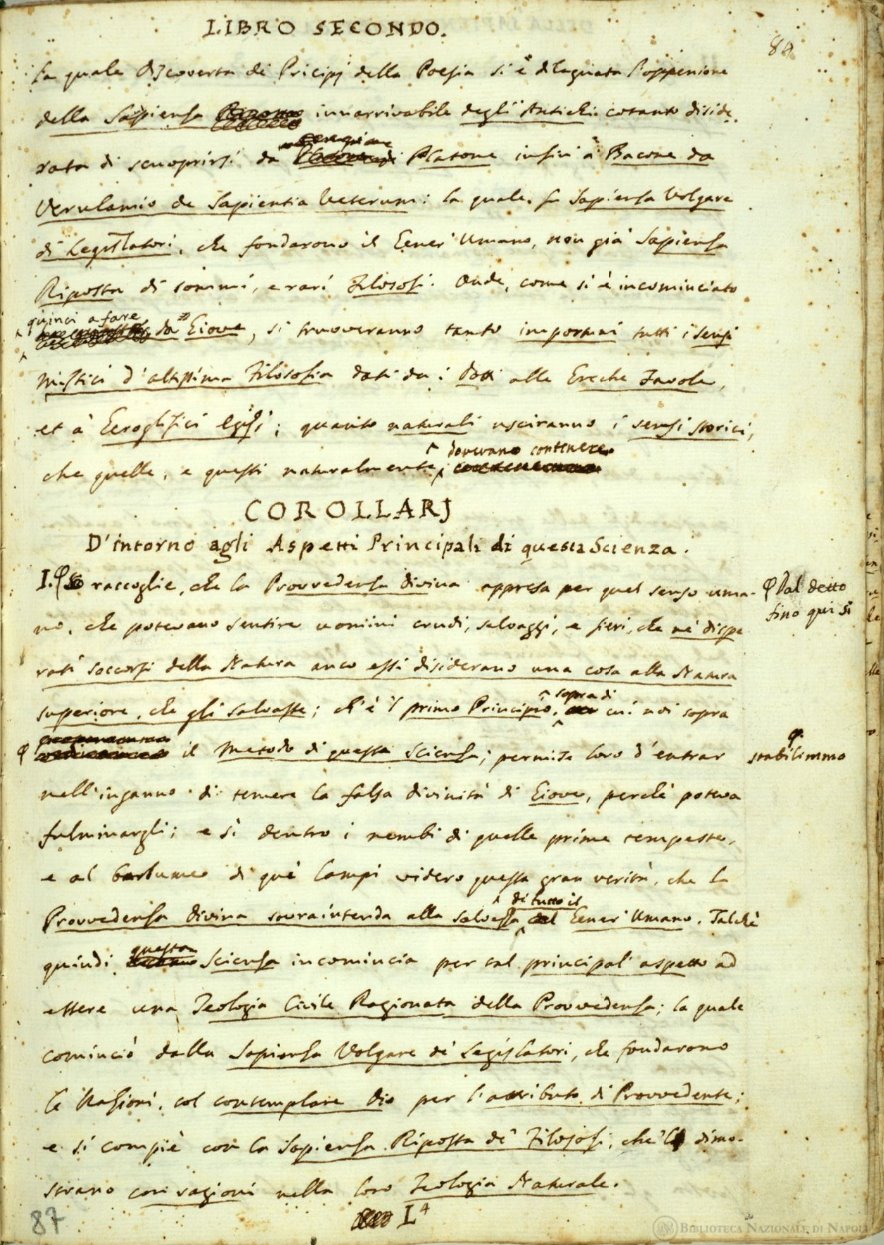 LIBRO SECONDO.
la quale Discoverta de' Pricipj della Poesia si è dileguata l'oppenione
della Sapienza innarrivabile degli Antichi cotanto diside-
rata di scuoprirsi da Platone infin' a Bacone da
Verulamio de Sapientia Veterum: la quale fu Sapienza Volgare
di Legislatori, che fondarono il Gener' Umano, non già Sapienza
Riposta di sommi, e rari Filosofi. Onde, come si è incominciato
quinci a fare da Giove, si truoveranno tanto importuni tutti i sensi
mistici d'altissima Filosofia dati da i Dotti alle Greche Favole,
et a' Geroglifici Egizj; quanto naturali usciranno i sensi storici,
che quelle, e questi naturalmente dovevano contenere
COROLLARJ
D'intorno agli Aspetti Principali di questa Scienza.
I. raccoglie, che la Provvedenza divina appresa per quel senso uma-
Dal detto
fino qui si
no, che potevano sentire uomini crudi, selvaggi, e fieri, che ne' dispe
rati soccorsi della Natura anco essi disiderano una cosa alla Natura
superiore, che gli salvasse; ch'è 'l primo Principio, sopra di cui noi sopra
stabilimmo
il Metodo di questa Scienza; permise loro d'entrar
nell'inganno di temere la falsa divinità di Giove, perchè poteva
fulminargli; e sì dentro i nembi di quelle prime tempeste,
e al barlume di que' lampi videro questa gran verità, che la
Provvedenza divina sovraintenda alla salvezza di tutto il Gener' Umano. Talchè
quindi questa Scienza incomincia per tal principal' aspetto ad
essere una Teologia Civile Ragionata della Provvedenza; la quale
cominciò dalla Sapienza Volgare de' Legislatori, che fondarono
le Nazioni, col contemplare Dio per l'attributo di Provvedente;
e si compiè con la Sapienza Riposta de' Filosofi, che 'l dimo-
strano con ragioni nella loro Teologia Naturale.
87
L4
BIBLIOTECA NAZIONALE DI NAPOLI